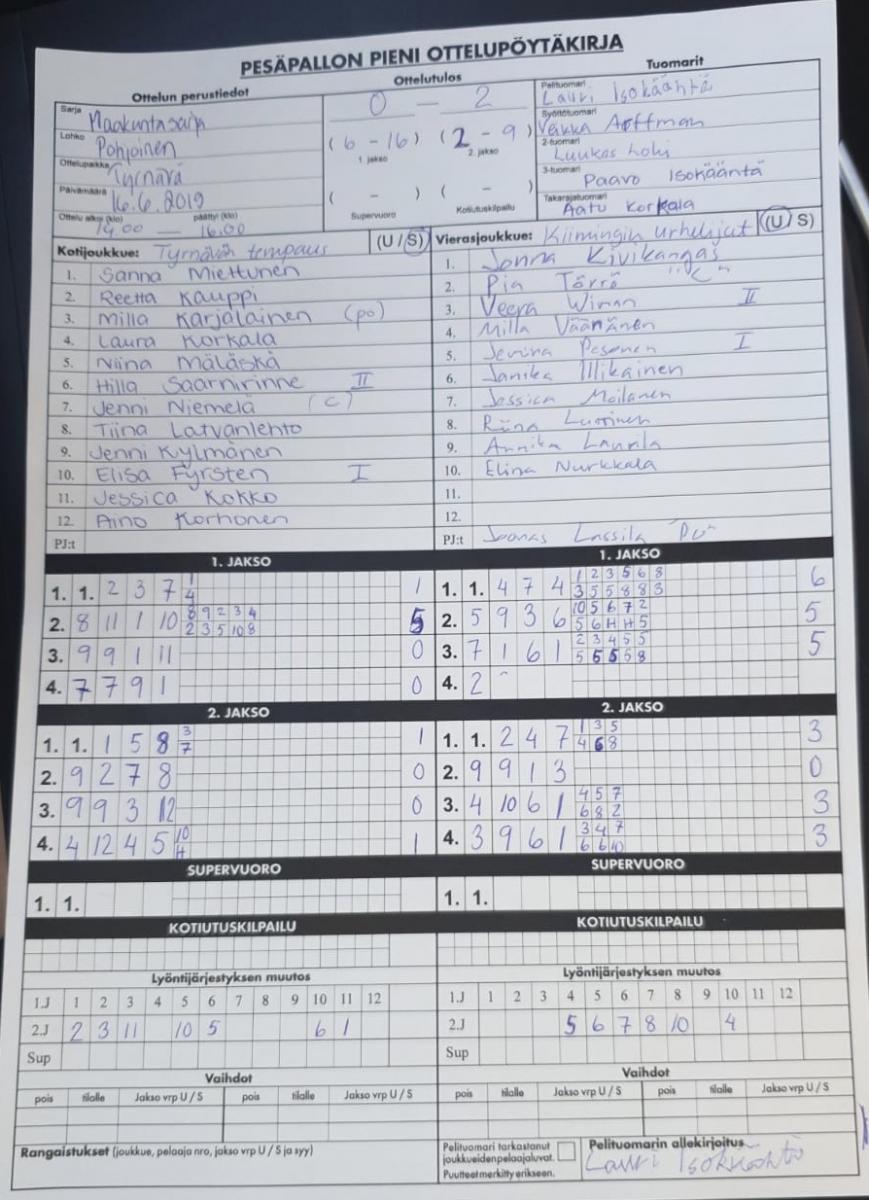 PESÄPALLON PIENI OTTELUPÖYTÄKIRJA
Ottelun perustiedot
Sarja Maakuntasarja
Lohko Pohjoinen
Ottelupaikka Tyrnävä
Päivämäärä 16.6.2019
Ottelu alkoi (klo) päättyi (klo)
14.00 — 16.00
Ottelutulos
0 - 2
(6 - 16) (2 - 9)
1. jakso 2. jakso
( - ) ( - )
Supervuoro Kotiutuskilpailu
Tuomarit
Pelituomari Lauri Isokääntä
Syöttötuomari Veikka
2-tuomari Luukas Lohi
3-tuomari Paavo Isokääntä
Takarajatuomari Aatu Korkala
Kotijoukkue: Tyrnävän tempaus (U / S)
1. Sanna Miettunen
2. Reetta Kauppi
3. Milla Karjalainen (po)
4. Laura Korkala
5. Niina Mäläskä
6. Hilla Saarnirinne II
7. Jenni Niemelä (C)
8. Tiina Latvanlehto
9. Jenni Kylmänen
10. Elisa Fyrsten I
11. Jessica Kokko
12. Aino Korhonen
PJ:t
Vierasjoukkue: Kiimingin Urheilijat (U / S)
1. Jonna Kivikangas
2. Pia Törrö "C"
3. Veera Wiman II
4. Milla Väänänen
5. Jenina Pesonen I
6. Janika Illikainen
7. Jessica Moilanen
8. Riina
9. Annika Laurila
10. Elina Nurkkala
11.
12.
PJ:t Joonas Lassila
1. JAKSO
1. 1. 2 3 7 1/4 1
2. 8 11 1 10 8/2 9/3 2/5 3/10 4/8 5
3. 9 9 1 11 0
4. 7 7 9 1 0
2. JAKSO
1. 1. 1 5 8 3/7 1
2. 9 2 7 8 0
3. 9 9 3 12 0
4. 4 12 4 5 10/H 1
SUPERVUORO
1. 1.
KOTIUTUSKILPAILU
1. JAKSO
1. 1. 4 7 4 1/3 2/5 3/5 5/8 6/8 8/3 6
2. 5 9 3 6 10/5 5/6 6/H 7/H 2/5 5
3. 7 1 6 1 2/5 3/5 4/5 5/5 5/8 5
4. 2
2. JAKSO
1. 1. 2 4 7 1/4 3/6 5/8 3
2. 9 9 1 3 0
3. 4 10 6 1 4/6 5/8 7/2 3
4. 3 9 6 1 3/6 4/6 7/10 3
SUPERVUORO
1. 1.
KOTIUTUSKILPAILU
Lyöntijärjestyksen muutos
1.J 1 2 3 4 5 6 7 8 9 10 11 12
2.J 2 3 11 10 5 6 1
Sup
Vaihdot
pois tilalle Jakso vrp U / S pois tilalle Jakso vrp U / S
Lyöntijärjestyksen muutos
1.J 1 2 3 4 5 6 7 8 9 10 11 12
2.J 5 6 7 8 10 4
Sup
Vaihdot
pois tilalle Jakso vrp U / S pois tilalle Jakso vrp U / S
Rangaistukset (joukkue, pelaaja nro, jakso vrp U / S ja syy)
Pelituomari tarkastanut
joukkueidenpelaajaluvat.
Puutteet merkitty erikseen.
Pelituomarin allekirjoitus
Lauri Isokääntä